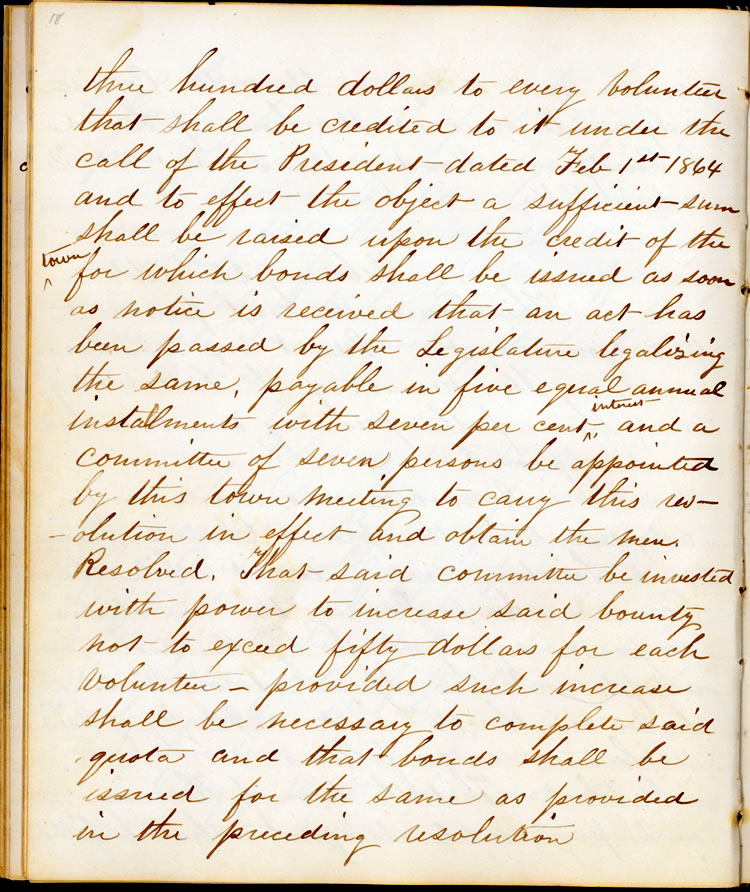 18
three hundred dollars to every Volunteer
that shall be credited to it under the
call of the President dated Feb 1st 1864
and to effect the object a sufficient sum
shall be raised upon the credit of the
town
for which bonds shall be issued as soon
as notice is received that an act has
been passed by the Legislature legalizing
the same, payable in five equal annual
interest
instalments with seven per cent ^ and a
committee of seven persons be appointed
by this town meeting to carry this res-
-olution in effect and obtain the men.
Resolved. That said committee be invested
with power to increase said bounty
not to exceed fifty dollars for each
volunteer - provided such increase
shall be necessary to complete said
quota and that bonds shall be
issued for the same as provided
in the preceding resolution